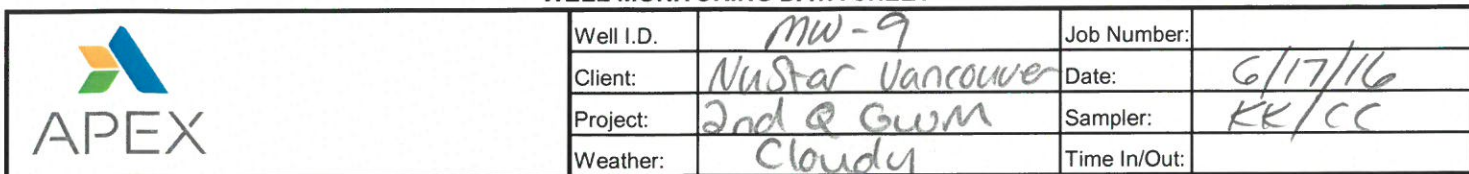 WELL MONITORING DATA SHEET
APEX
Well I.D. MW-9 Job Number:
Client: NuStar Vancouver Date: 6/17/16
Project: 2nd Q GWM Sampler: KK/CC
Weather: Cloudy Time In/Out: